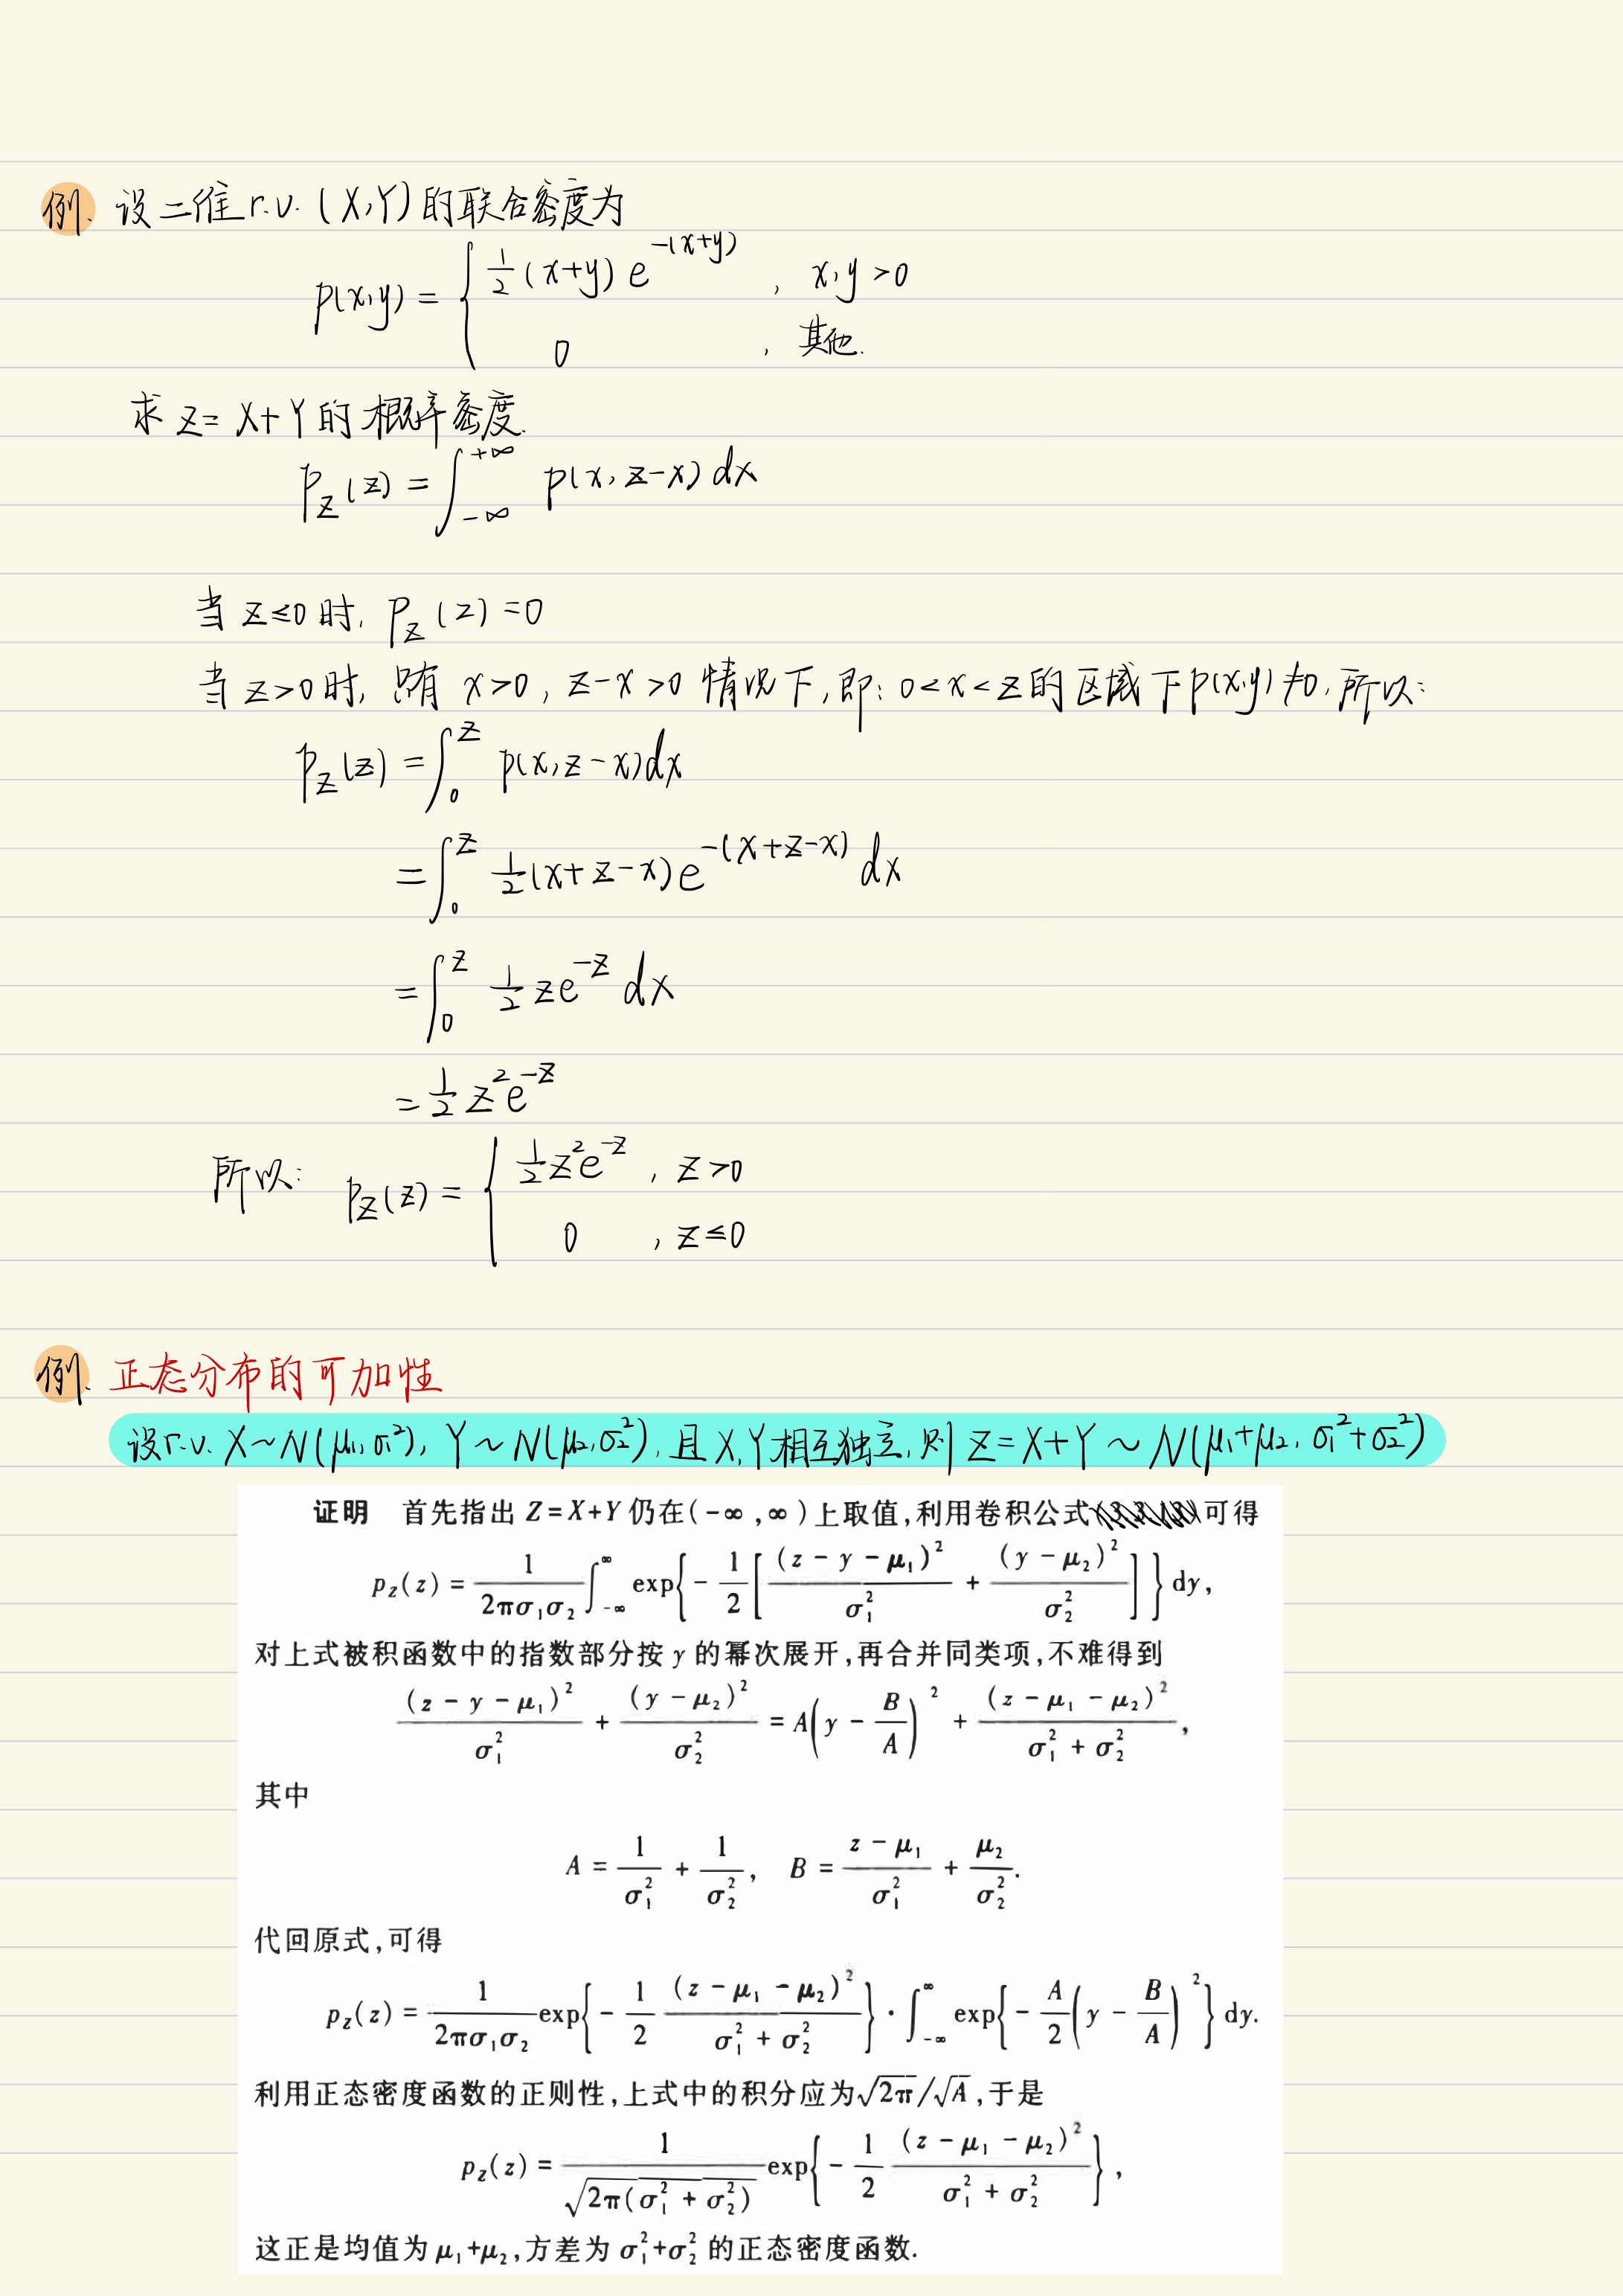 例. 设二维 r.v. (X,Y) 的联合密度为
p(x,y) = { 1/2 (x+y) e^{-(x+y)} , x,y>0
0 , 其他.
求 Z= X+Y 的概率密度.
p_Z(z) = ∫_{-∞}^{+∞} p(x, z-x) dx
当 z≤0 时, p_Z(z)=0
当 z>0 时, 只有 x>0, z-x>0 情况下, 即: 0<x<z 的区域下 p(x,y)≠0, 所以:
p_Z(z) = ∫_0^z p(x, z-x)dx
= ∫_0^z 1/2 (x+z-x) e^{-(x+z-x)} dx
= ∫_0^z 1/2 z e^{-z} dx
= 1/2 z^2 e^{-z}
所以: p_Z(z) = { 1/2 z^2 e^{-z} , z>0
0 , z≤0
例. 正态分布的可加性
设r.v. X~N(μ₁,σ₁²), Y~N(μ₂,σ₂²), 且 X,Y相互独立, 则 Z=X+Y ~ N(μ₁+μ₂, σ₁²+σ₂²)
证明 首先指出 Z=X+Y 仍在(-∞,∞)上取值,利用卷积公式可得
p_Z(z) = 1/(2πσ₁σ₂) ∫_{-∞}^{∞} exp{ -1/2 [ (z-y-μ₁)²/σ₁² + (y-μ₂)²/σ₂² ] } dy,
对上式被积函数中的指数部分按 y 的幂次展开,再合并同类项,不难得到
(z-y-μ₁)²/σ₁² + (y-μ₂)²/σ₂² = A(y - B/A)² + (z-μ₁-μ₂)²/(σ₁²+σ₂²),
其中
A = 1/σ₁² + 1/σ₂², B = (z-μ₁)/σ₁² + μ₂/σ₂².
代回原式,可得
p_Z(z) = 1/(2πσ₁σ₂) exp{ -1/2 (z-μ₁-μ₂)²/(σ₁²+σ₂²) } · ∫_{-∞}^{∞} exp{ -A/2 (y - B/A)² } dy.
利用正态密度函数的正则性,上式中的积分应为√2π/√A,于是
p_Z(z) = 1/√(2π(σ₁²+σ₂²)) exp{ -1/2 (z-μ₁-μ₂)²/(σ₁²+σ₂²) },
这正是均值为 μ₁+μ₂,方差为 σ₁²+σ₂² 的正态密度函数.